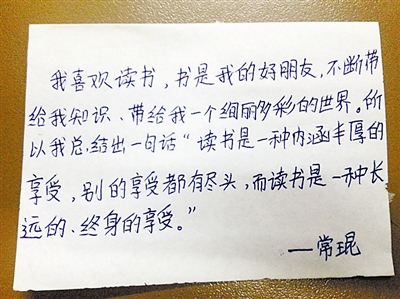 我喜欢读书，书是我的好朋友，不断带
给我知识、带给我一个绚丽多彩的世界。所
以我总结出一句话“读书是一种内涵丰厚的
享受，别的享受都有尽头，而读书是一种长
远的、终身的享受。”
—常琨